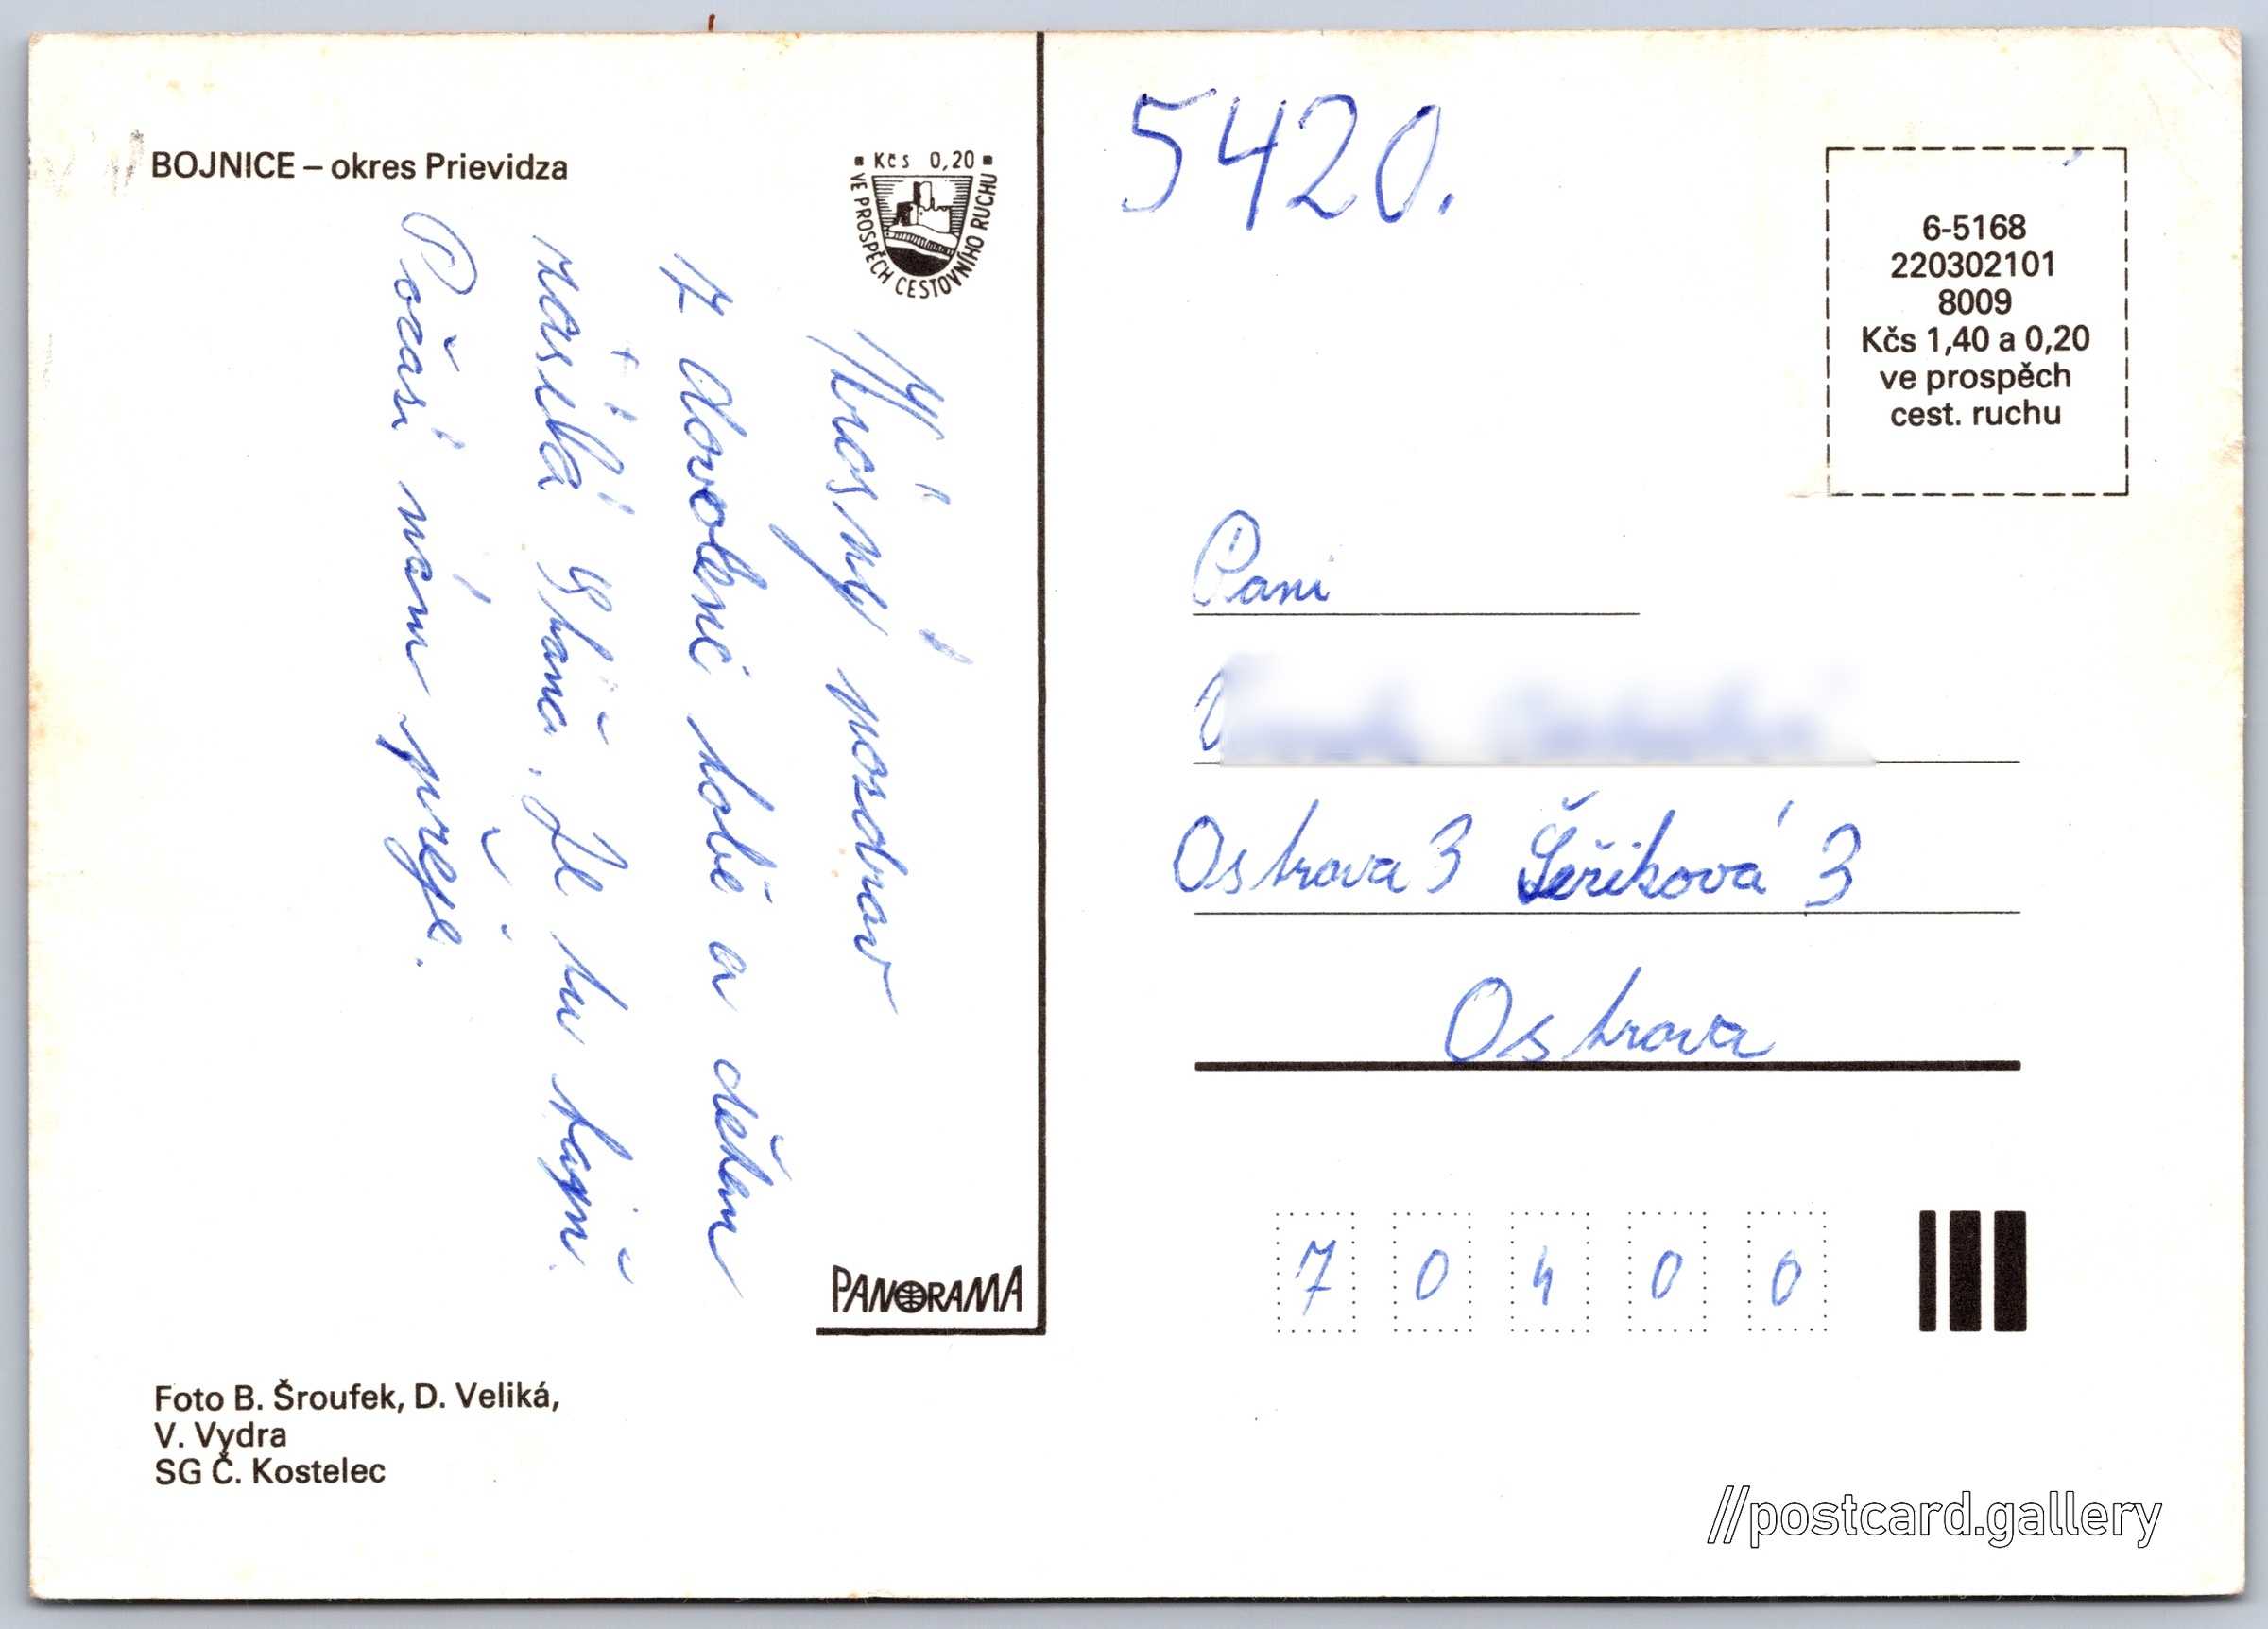 BOJNICE – okres Prievidza
Kčs 0,20
VE PROSPĚCH CESTOVNÍHO RUCHU
Krásný pozdrav
z dovolené tobě a dětem
zasílá Je tu fajn.
Počasí nám přeje.
PANORAMA
Foto B. Šroufek, D. Veliká,
V. Vydra
SG Č. Kostelec
5420.
6-5168
220302101
8009
Kčs 1,40 a 0,20
ve prospěch
cest. ruchu
Paní
Ostrava 3 Šeříková 3
Ostrava
7 0 4 0 0
//postcard.gallery